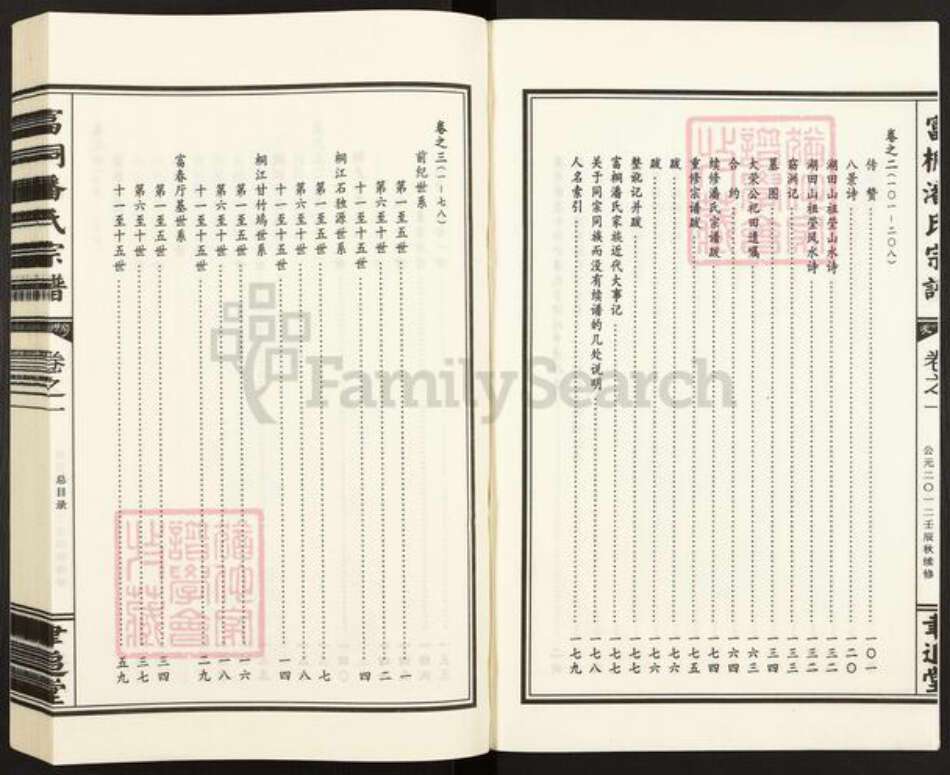 富桐潘氏宗谱
卷之一
公元二〇一二壬辰秋续修
聿追堂
卷之二(一〇一—二〇八)
传赞 一〇一
八景诗 一二〇
湖田山祖茔山水诗 一三二
湖田山祖茔风水诗 一三二
窈洲记 一三三
墓图 一三四
大荣公祀田遗嘱 一六三
合约 一六四
续修潘氏宗谱跋 一七四
重修宗谱跋 一七五
跋 一七六
跋 一七六
整讹记并跋 一七七
富桐潘氏家族近代大事记 一七七
关于同宗同族而没有续谱的几处说明 一七八
人名索引 一七九
卷之三(一—七八)
前纪世系
第一至五世 一
第六至十世 二
十一至十五世 四
桐江石独源世系
第一至五世 七
第六至十世 八
十一至十三世 一四
桐江甘竹坞世系
第一至五世 一六
第六至十世 一八
十一至十五世 二九
富春厅基世系
第一至五世 三四
第六至十世 三七
十一至十五世 五九
富桐潘氏宗谱
卷之一
总目录
聿追堂
FamilySearch